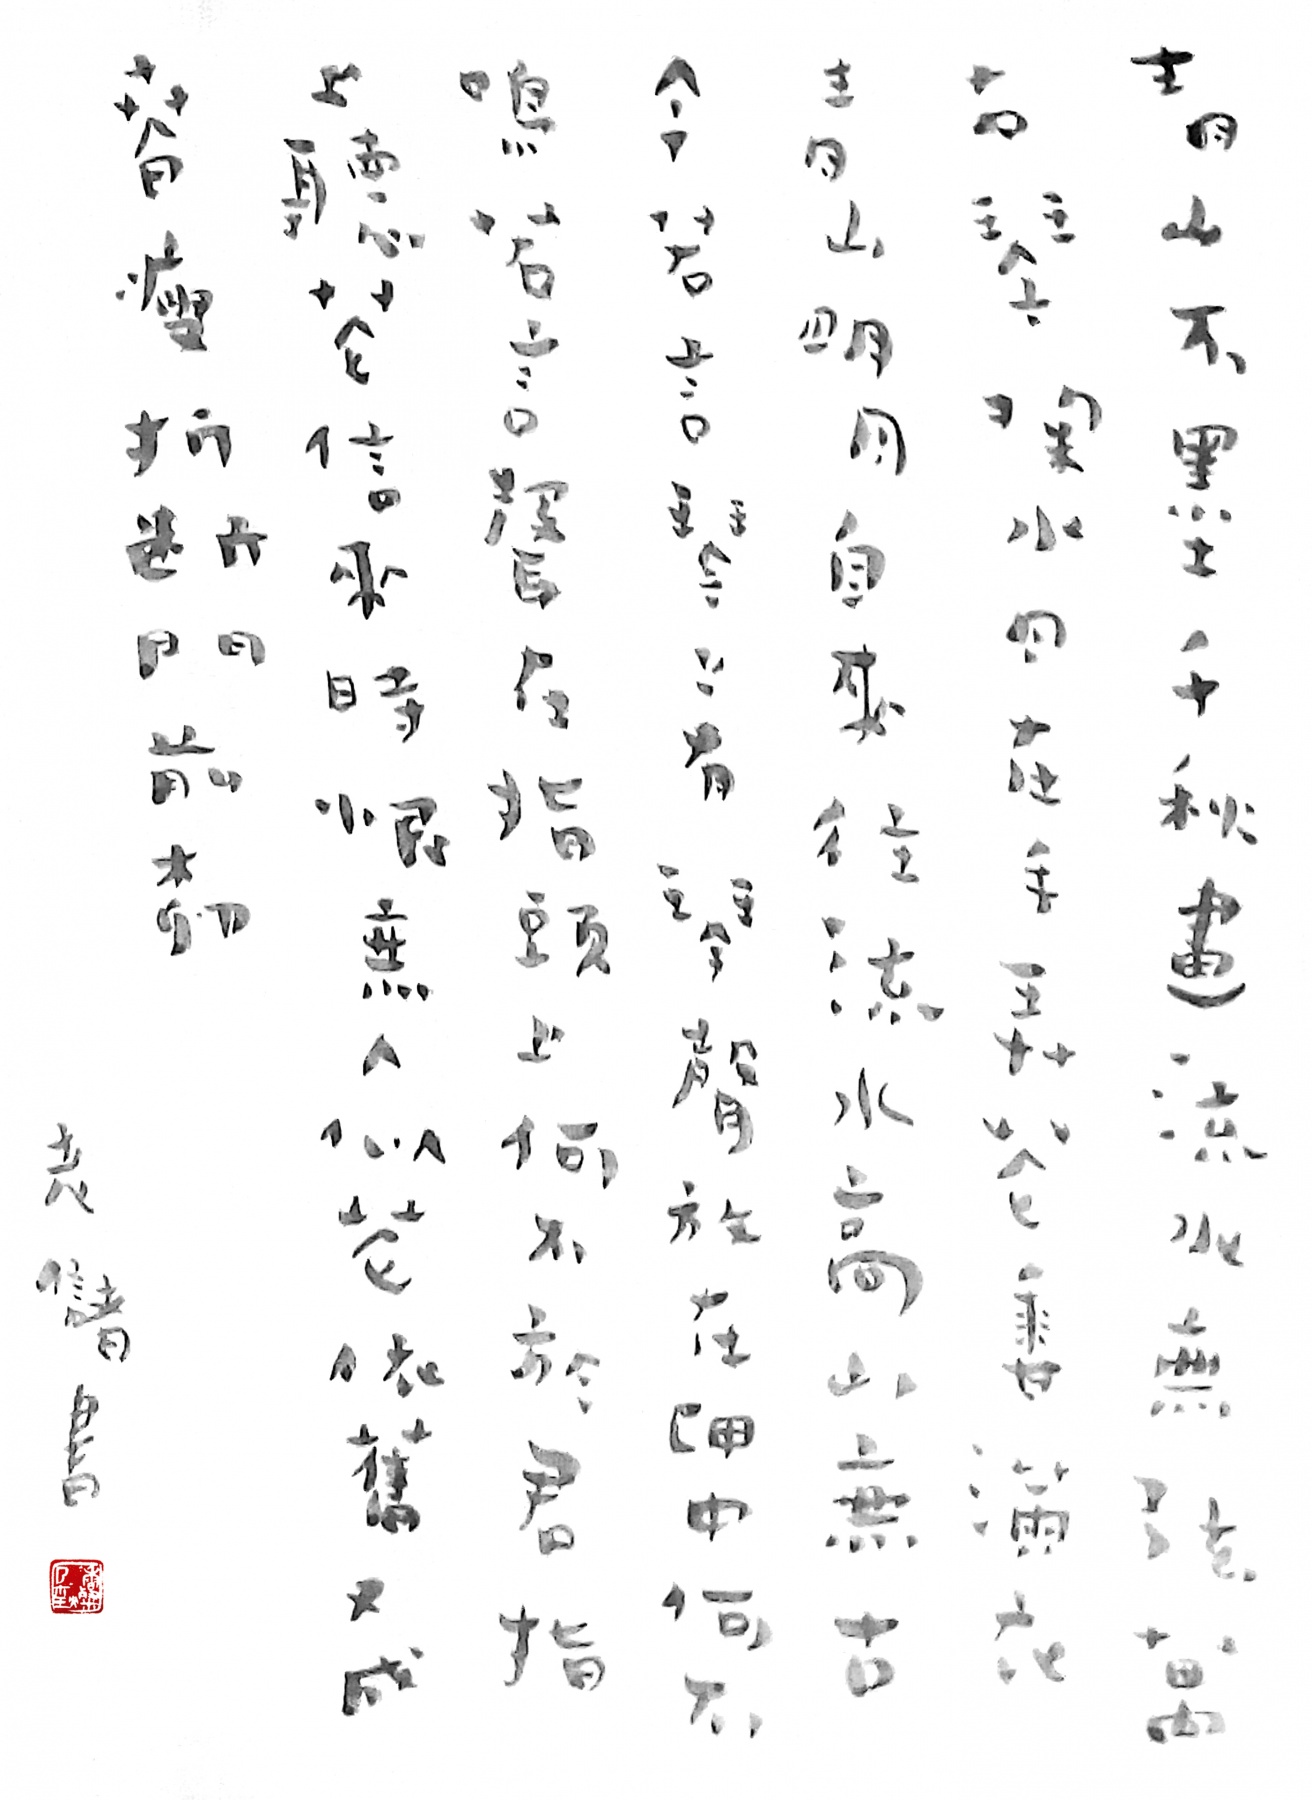 青山不墨千秋畫流水無弦萬
古琴掬水月在手弄花香滿衣
青山明月自來往流水高山無古
今若言琴上有琴聲放在匣中何不
鳴若言聲在指頭上何不於君指
上聽花信來時恨無人似花依舊又成
春瘦折斷門前柳
老儲書